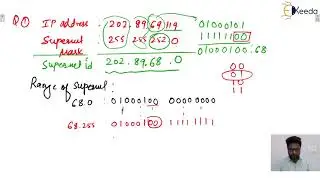 Ekeeda
Q① IP address : 202.89.69.119
01000101
Supernet Mask 255 255 252 0
11111100
01000100.68
Supernet id 202.89.68.0
00
01
10
11
Range of supernet :
68.0 : 01000100 00000000
68.255 01000100 11111111